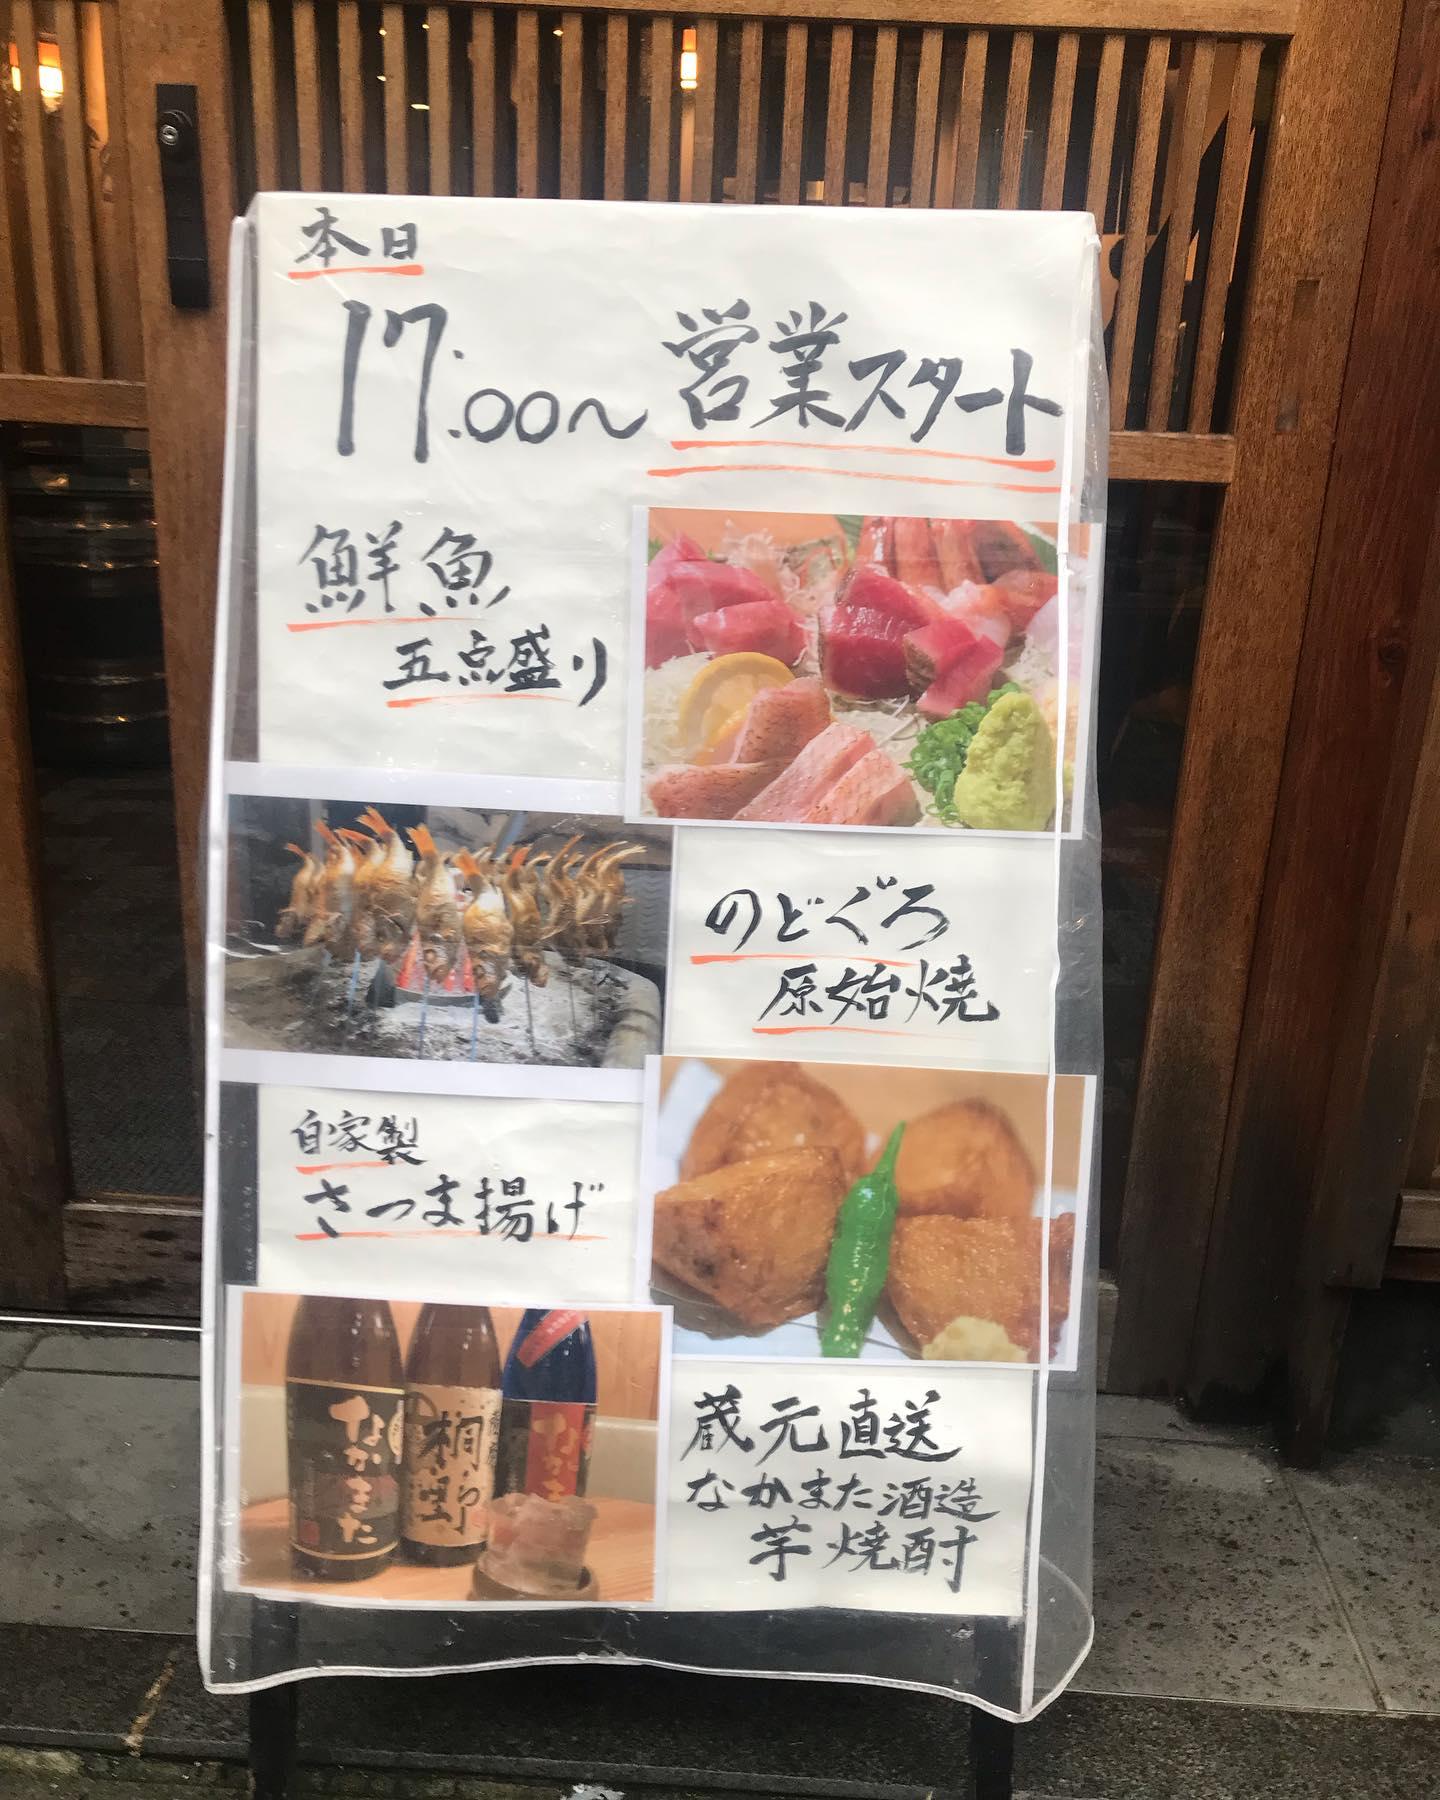 本日
17:00〜 営業スタート
鮮魚
五点盛り
のどぐろ
原始焼
自家製
さつま揚げ
なかまた
桐野
蔵元直送
なかまた酒造
芋焼酎